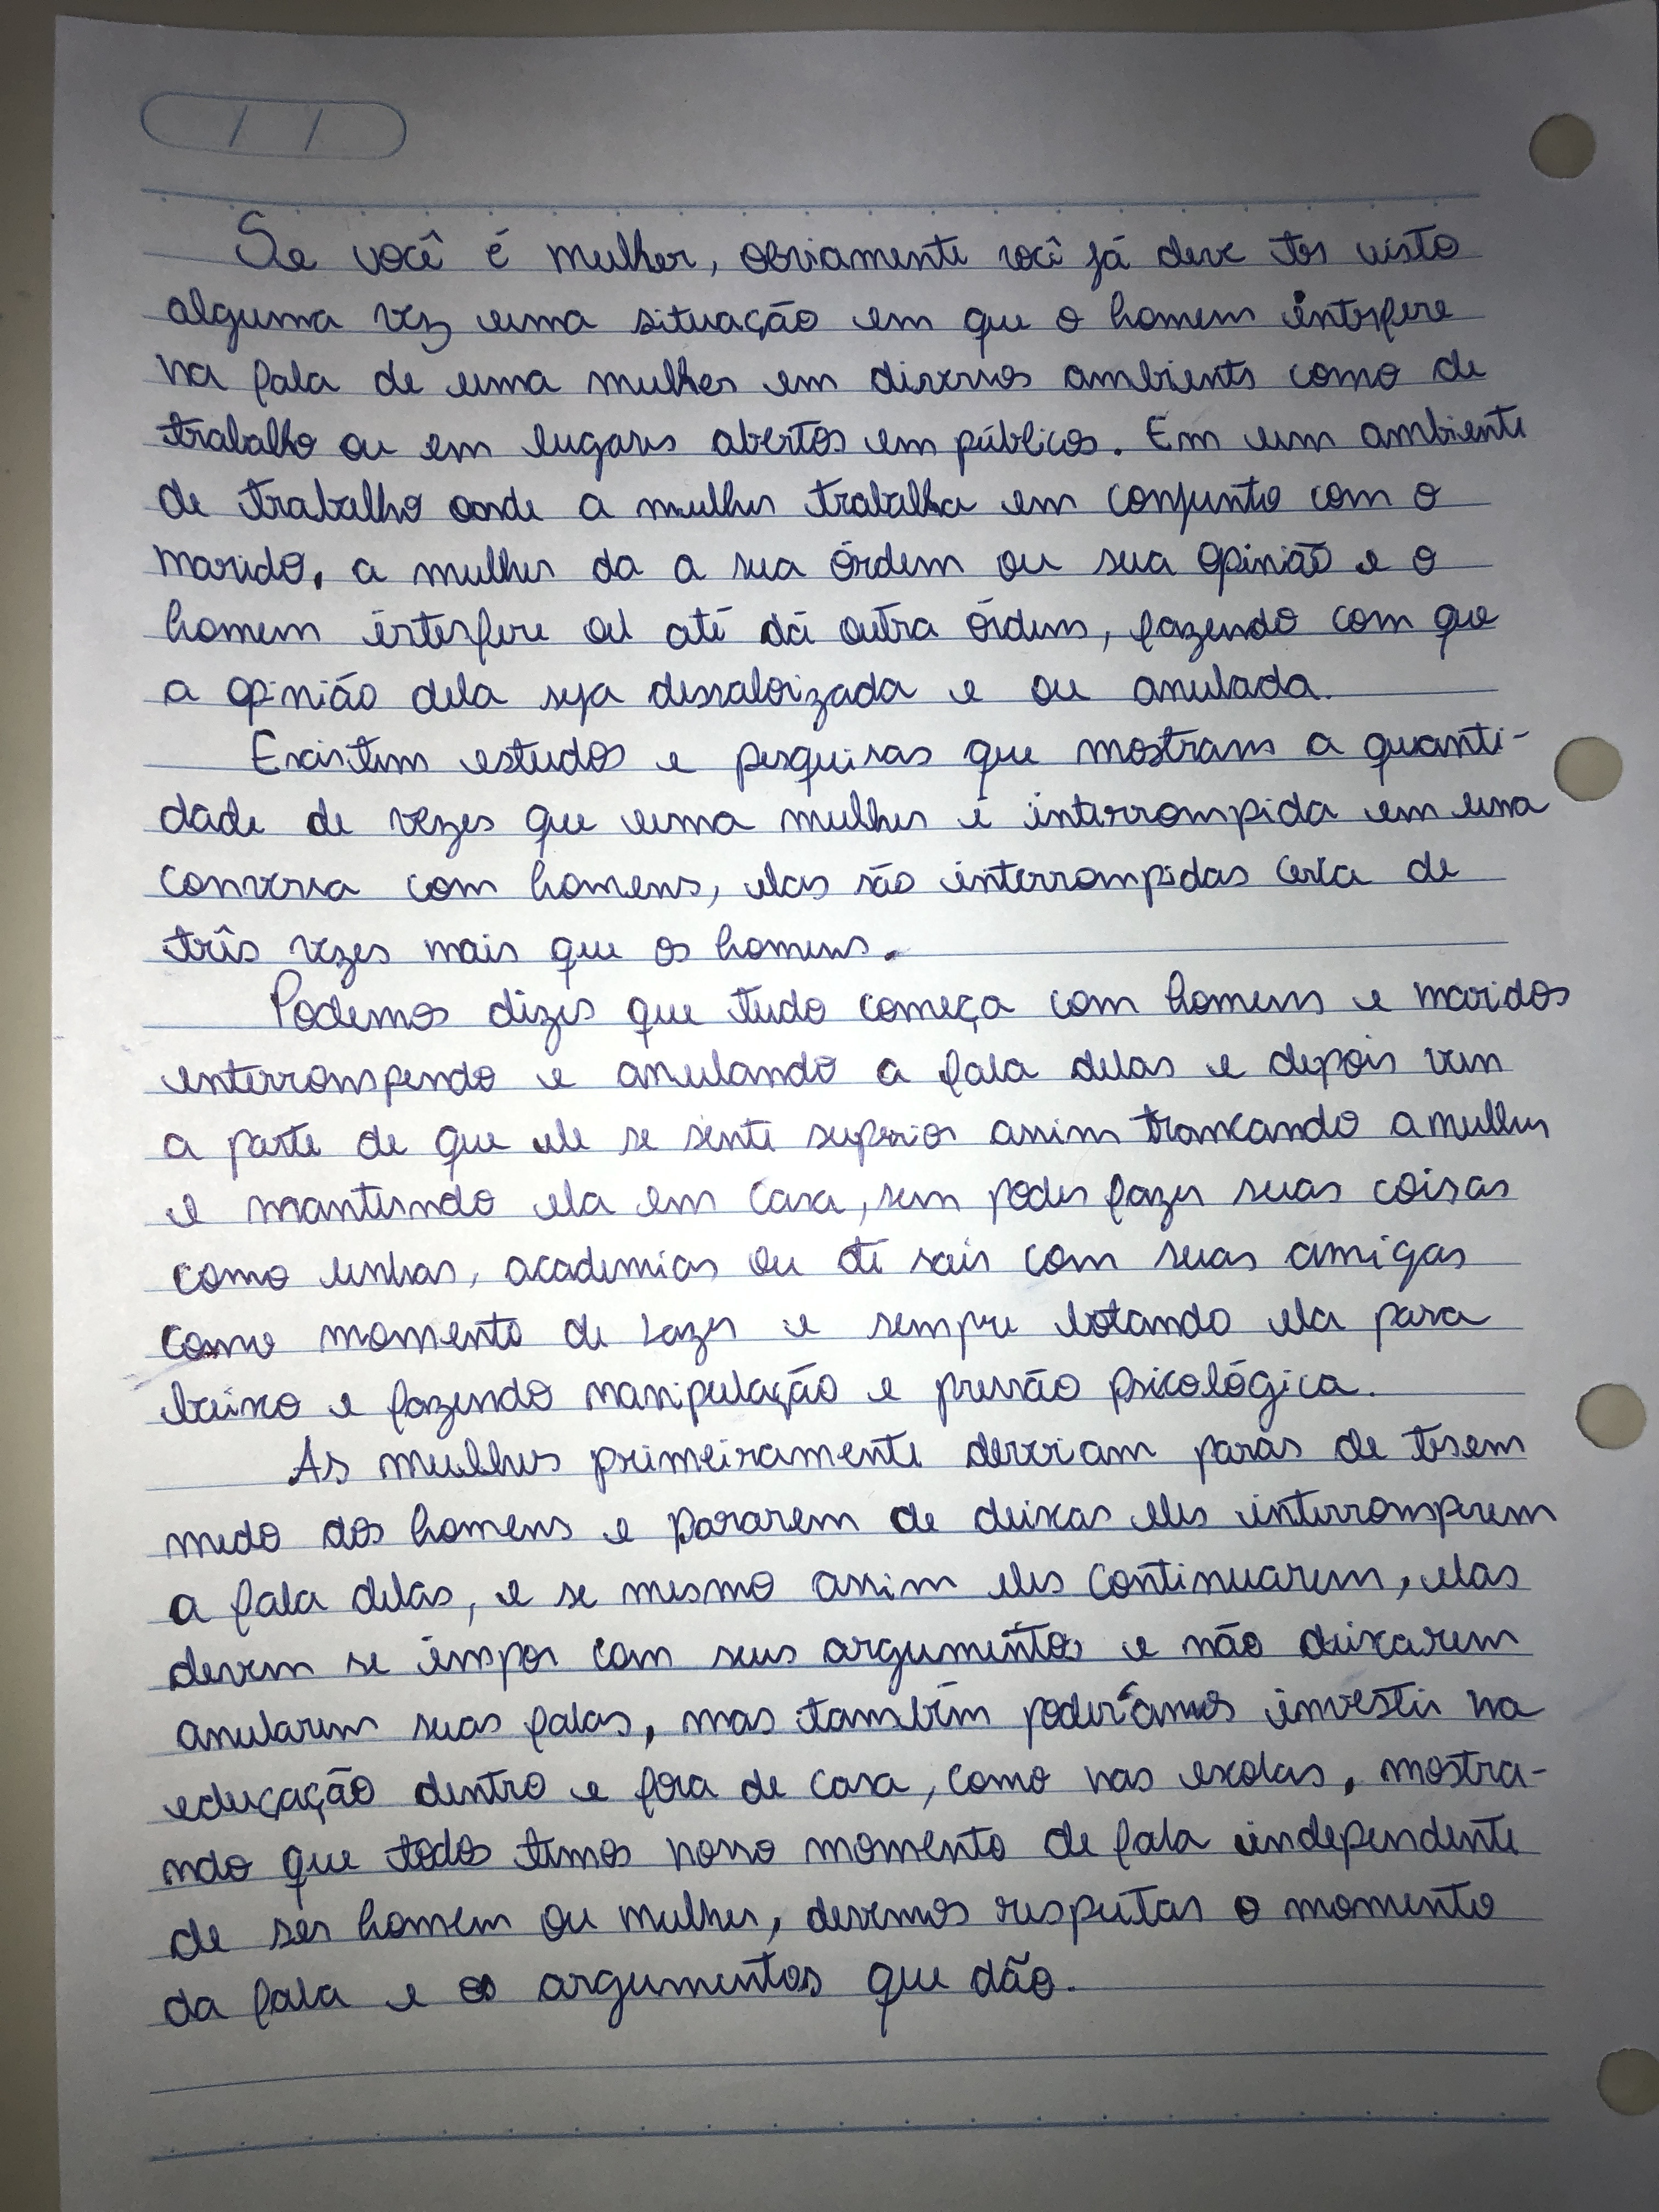 Se você é mulher, obviamente você já deve ter visto
alguma vez uma situação em que o homem interfere
na fala de uma mulher em diversos ambients como de
trabalho ou em lugares abertos em públicos. Em um ambiente
de trabalho onde a mulher trabalha em conjunto com o
marido, a mulher da a sua órdem ou sua opinião e o
homem interfere ou até dá outra órdem, fazendo com que
a opinião dela seja desvaloizada e ou anulada.
Existem estudos e pesquisas que mostram a quanti-
dade de vezes que uma mulher é interrompida em uma
conversa com homens, elas são interrompidas cerca de
três vezes mais que os homens.
Podemos dizer que tudo começa com homens e maridos
interrompendo e anulando a fala delas e depois vem
a parte de que ele se sente superior assim trancando a mulher
e mantendo ela em casa, sem poder fazer suas coisas
como unhas, academias ou de sair com suas amigas
como momento de Lazer e sempre botando ela para
baixo e fazendo manipulação e pressão psicológica.
As mulheres primeiramente deveriam parar de terem
medo dos homens e pararem de deixar eles interromperem
a fala delas, e se mesmo assim eles continuarem, elas
devem se impor com seus argumentos e não deixarem
anularem suas falas, mas também poderíamos investir na
educação dentro e fora de casa, como nas escolas, mostra-
ndo que todos temos nosso momento de fala independente
de ser homem ou mulher, devemos respeitar o momento
da fala e os argumentos que dão.